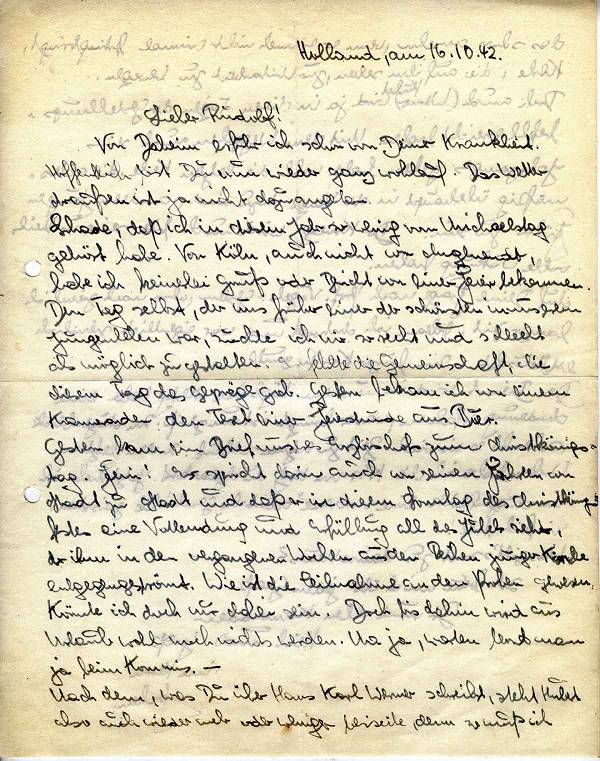 Holland, am 16.10.42.
Lieber Rudolf!
Von Daheim erfuhr ich schon von Deiner Krankheit.
Hoffentlich bist Du nun wieder ganz wohlauf. Das Wetter
draußen ist ja nicht dazu angetan.
Schade, daß ich in diesem Jahr so wenig vom Michaelstag
gehört habe. Von Köln, auch nicht von
habe ich keinerlei Gruß oder Bericht von einer Feier bekommen.
Den Tag selbst, der uns früher einer der schönsten in unserem
Jungenleben war, suchte ich mir so recht und schlecht
als möglich zu gestalten. Es fehlte die Gemeinschaft, die
diesem Tag das Gepräge gab. Gestern bekam ich von einem
Kameraden den Text einer Feierstunde aus
Gestern kam ein Brief unseres Erzbischofs zum Christkönigs-
tag. Fein! Er spricht darin auch von seinen Fahrten von
Stadt zu Stadt und daß er in diesem Sonntag des Christkönigs-
festes eine Vollendung und Erfüllung all des Jubels sieht,
der ihm in den vergangenen Wochen aus den Reihen junger Kirche
entgegengeströmt. Wie ist die Teilnahme an den Proben gewesen.
Könnte ich doch nur dabei sein. Doch bis dahin wird aus
Urlaub wohl noch nichts werden. Na ja, warten lernt man
ja beim Kommis. —
Nach dem, was Du über Hans Karl Werner schreibst, steht
also auch wieder mehr oder weniger beiseite, denn so muß ich